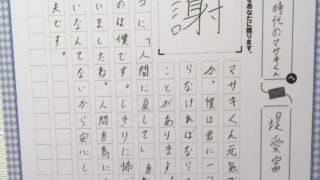 時代のマサキくん
へ
堤愛富
あなたに贈ります。
謝
マサキくん元気で
か。僕は君に一つ
らなければならな
ことがあります。
うに「人間に戻してし
のは僕です。しきりに怖
いましたね。人間を鳥に
いなんてないから安心し
夫です。